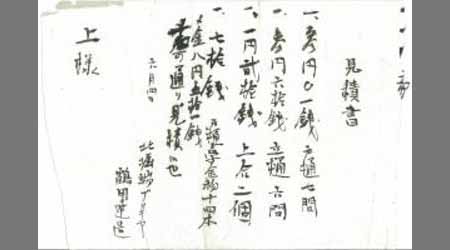 見積書
一、参円〇一銭 樋七間
一、参円六拾銭 立樋六間
一、一円弐拾銭 上合二個
一、七拾銭 金物十四本
〆金八円五拾一銭
右之通り見積候也
六月四日
北堀端
鶴田
上様